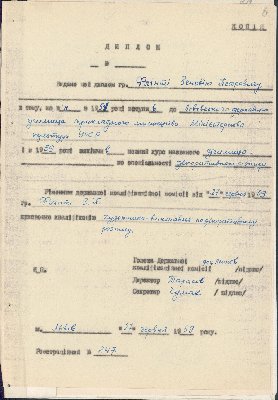 6
КОПІЯ
ДИПЛОМ
в
Видано цей диплом гр.
в тому, що в н в 1954 році вступив до Львівського державного
училища прикладного мистецтва Міністерства
культури УРСР
і в 1959 році закінчив повний курс названого училища
по спеціальності декоративний розпис
Рішенням державної кваліфікаційної комісії від 27 червня 1959
гр.
присвоєно кваліфікацію художника-виконавця по декоративному
розпису.
Голова Державної
кваліфікаційної комісії /підпис/
М.П.
Директор Тарасов /підпис/
Секретар /підпис/
м. Львів 27 червня 1959 року.
Реєстраційний № 747